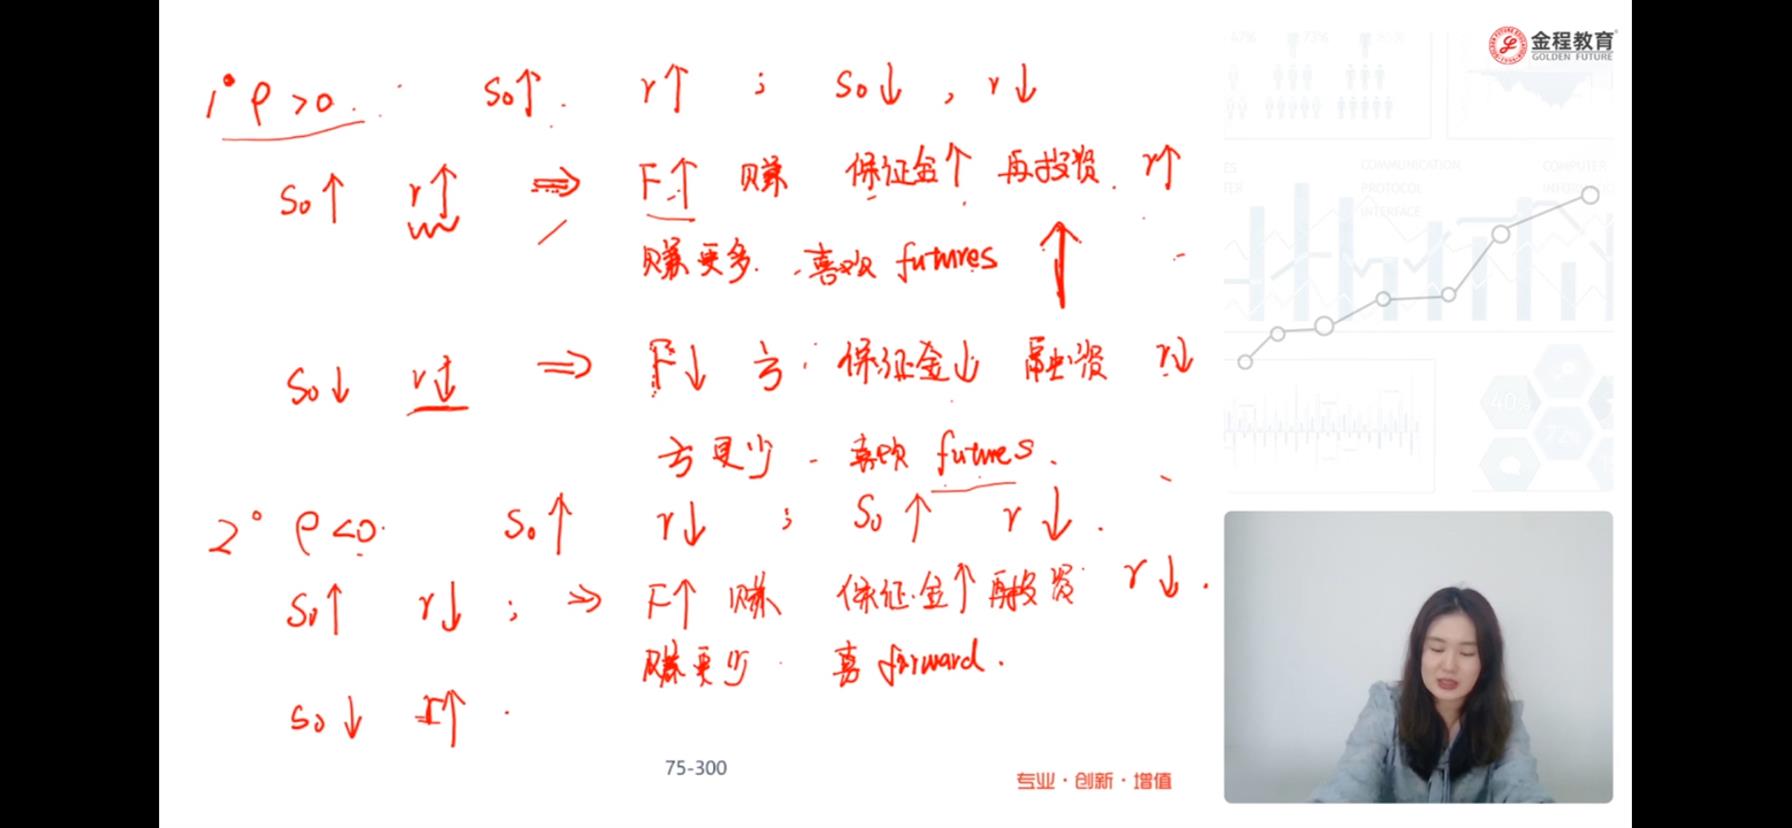 金程教育
GOLDEN FUTURE
1° ρ>0. S₀↑. r↑ ; S₀↓, r↓
S₀↑ r↑ ⇒ F↑ 赚 保证金↑ 再投资. r↑
赚更多. 喜欢 futures ↑
S₀↓ r↓ ⇒ F↓ 亏. 保证金↓ 融资 r↓
亏更少 - 喜欢 futures.
2° ρ<0. S₀↑ r↓ ; S₀↑ r↓.
S₀↑ r↓ ; ⇒ F↑ 赚 保证金↑ 再投资 r↓.
赚更少. 喜 forward.
S₀↓ r↑.
47% 73% 85%
COMMUNICATION
PROTOCOL
INTERFACE
COMPUTER
40%
72%
75-300
专业·创新·增值